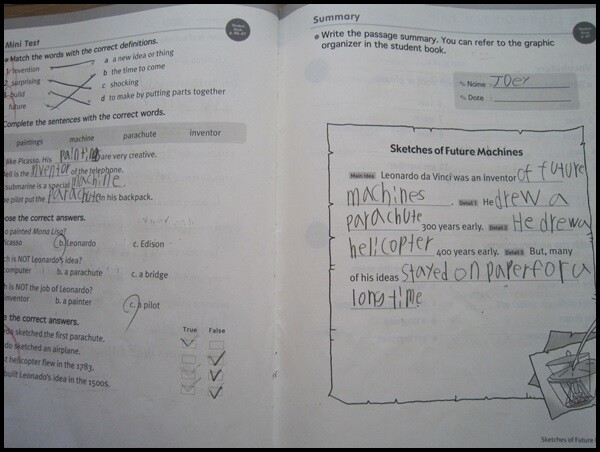 Mini Test
Match the words with the correct definitions.
1 invention
a a new idea or thing
2 surprising
b the time to come
3 build
c shocking
future
d to make by putting parts together
Complete the sentences with the correct words.
paintings machine parachute inventor
like Picasso. His painting are very creative.
Bell is the inventor of the telephone.
submarine is a special machine.
e pilot put the parachute in his backpack.
oose the correct answers.
o painted Mona Lisa?
Picasso b. Leonardo c. Edison
ch is NOT Leonardo's idea?
computer b. a parachute c. a bridge
ch is NOT the job of Leonardo?
inventor b. a painter c. a pilot
e the correct answers.
True False
do sketched the first parachute.
do sketched an airplane.
t helicopter flew in the 1783.
built Leonado's idea in the 1500s.
Summary
Write the passage summary. You can refer to the graphic
organizer in the student book.
Name Joey
Date
Sketches of Future Machines
Main Idea Leonardo da Vinci was an inventor of future
machines. Detail 1 He drew a
parachute 300 years early. Detail 2 He drew a
helicopter 400 years early. Detail 3 But, many
of his ideas stayed on paper for a
long time
Sketches of Future